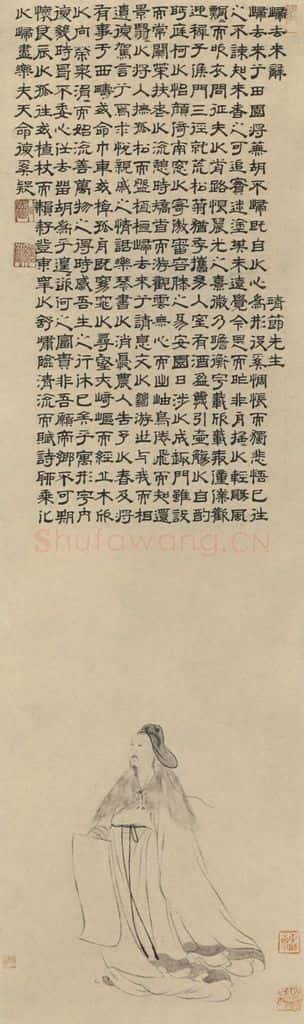 歸去來辭
靖節先生
歸去來兮田園將蕪胡不歸既自以心為形役奚惆悵而獨悲悟已往
之不諫知來者之可追實迷塗其未遠覺今是而昨非舟搖搖以輕颺風
飄飄而吹衣問征夫以前路恨晨光之熹微乃瞻衡宇載欣載奔僮僕歡
迎稚子候門三徑就荒松菊猶存攜幼入室有酒盈樽引壺觴以自酌
眄庭柯以怡顏倚南窗以寄傲審容膝之易安園日涉以成趣門雖設
而常關策扶老以流憩時矯首而遐觀雲無心而出岫鳥倦飛而知還
景翳翳以將入撫孤松而盤桓歸去來兮請息交以絕游世與我而相
遺復駕言兮焉求悅親戚之情話樂琴書以消憂農人告予以春及將
有事于西疇或命巾車或棹孤舟既窈窕以尋壑亦崎嶇而經丘木欣欣
以向榮泉涓涓而始流善萬物之得時感吾生之行休已矣乎寓形宇內
復幾時曷不委心任去留胡為乎遑遑欲何之富貴非吾願帝鄉不可期
懷良辰以孤往或植杖而耘耔登東皋以舒嘯臨清流而賦詩聊乘化
以歸盡樂夫天命復奚疑
Shufawang.CN